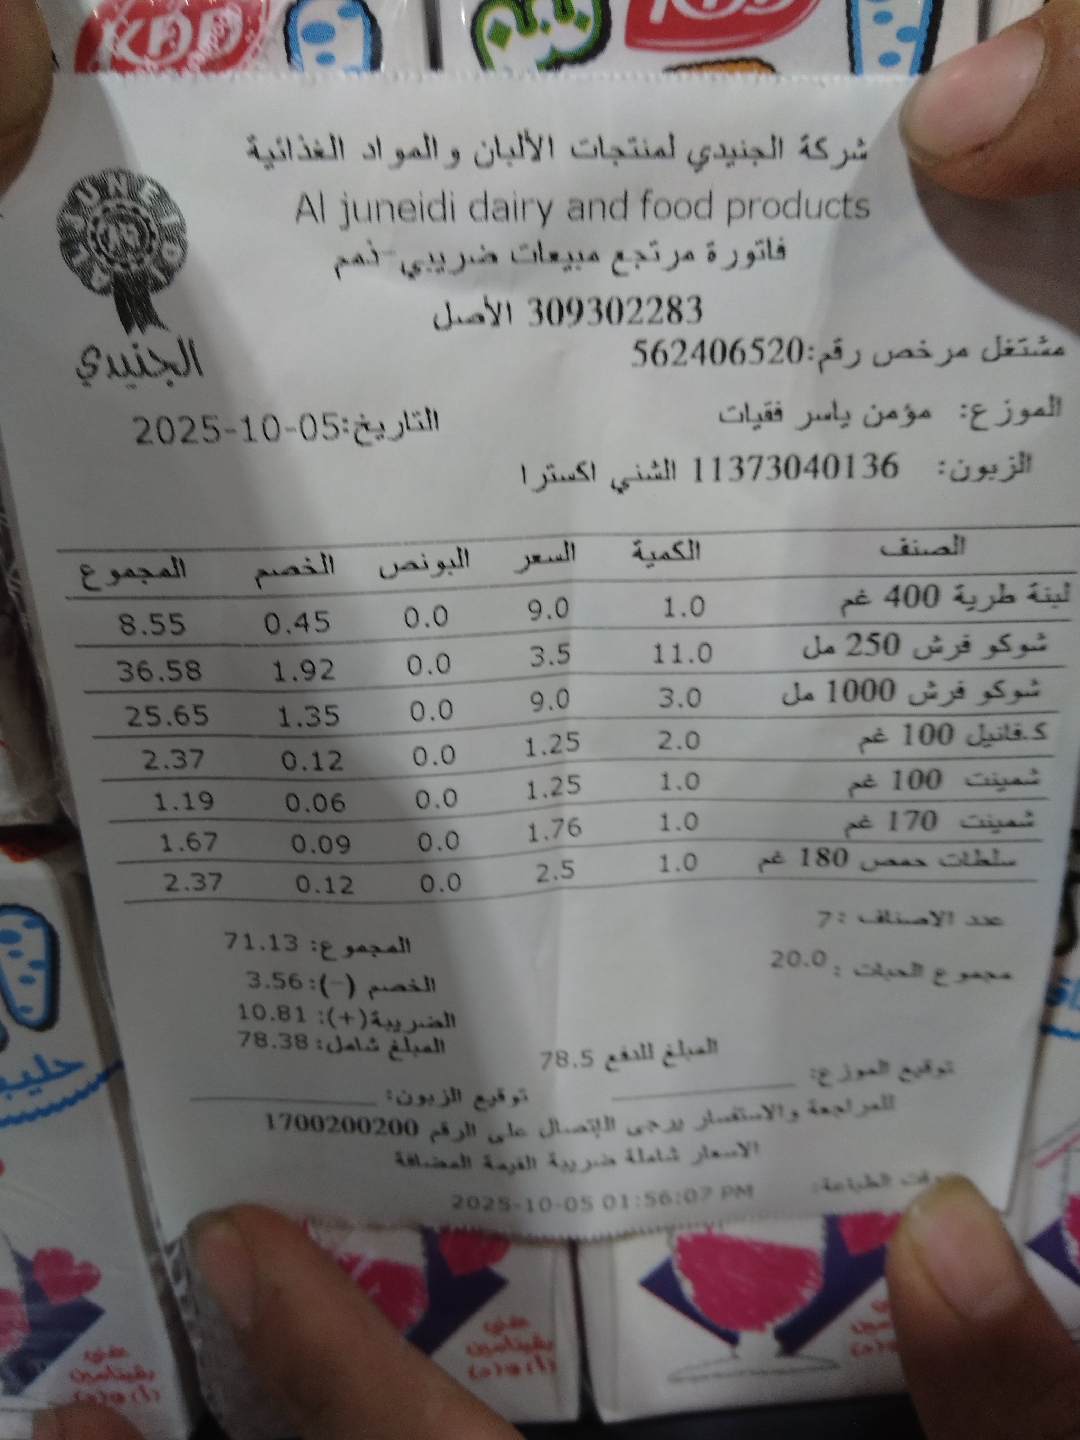 KDD
KDD
شركة الجنيدي لمنتجات الألبان والمواد الغذائية
Al juneidi dairy and food products
فاتورة مرتجع مبيعات ضريبي-ذمم
309302283 الأصل
الجنيدي
مشتغل مرخص رقم:562406520
الموزع: مؤمن ياسر فقيات
التاريخ:2025-10-05
الزبون: 11373040136 الشني اكسترا
الصنف الكمية السعر البونص الخصم المجموع
لبنة طرية 400 غم 1.0 9.0 0.0 0.45 8.55
شوكو فرش 250 مل 11.0 3.5 0.0 1.92 36.58
شوكو فرش 1000 مل 3.0 9.0 0.0 1.35 25.65
ك.فانيل 100 غم 2.0 1.25 0.0 0.12 2.37
شمينت 100 غم 1.0 1.25 0.0 0.06 1.19
شمينت 170 غم 1.0 1.76 0.0 0.09 1.67
سلطات حمص 180 غم 1.0 2.5 0.0 0.12 2.37
عدد الاصناف :7
المجموع: 71.13
مجموع الحبات : 20.0
الخصم (-):3.56
الضريبة(+): 10.81
المبلغ شامل: 78.38
المبلغ للدفع 78.5
توقيع الموزع:
توقيع الزبون:
للمراجعة والاستفسار يرجى الإتصال على الرقم 1700200200
الاسعار شاملة ضريبة القيمة المضافة
وقت الطباعة: 2025-10-05 01:56:07 PM
حليب
غني
بفيتامين